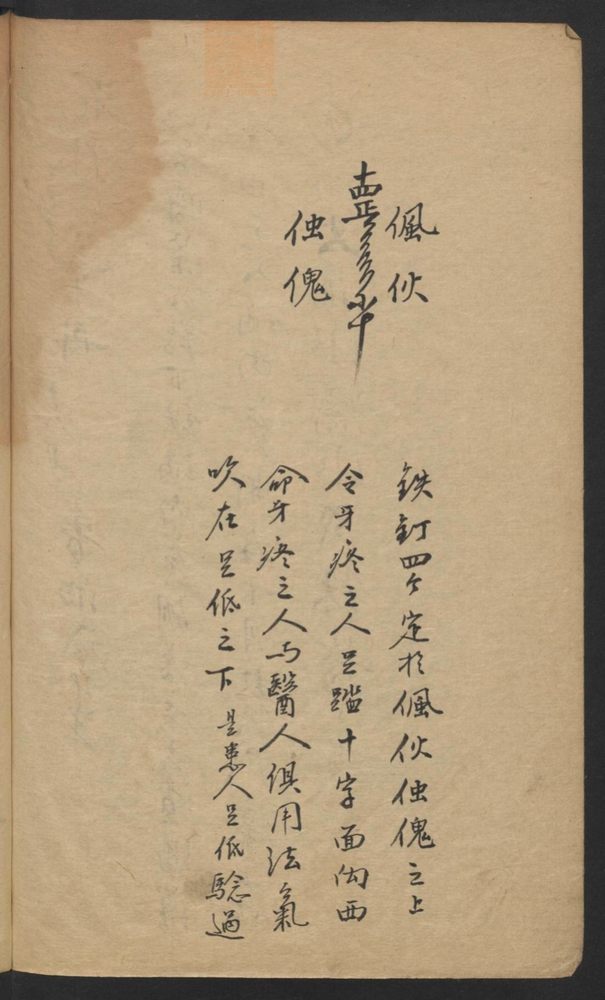 偑伙
伷傀
鉄釘四个定於偑伙伷傀之上
令牙疼之人足踏十字面向西
命牙疼之人与醫人俱用法氣
吹在足低之下是患人足低騐過